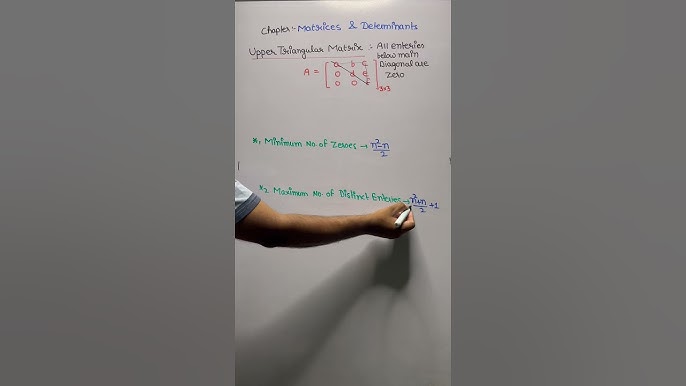 Chapter:- Matrices & Determinants
Upper Triangular Matrix : All enteries
below main
Diagonal are
Zero
A = [a b c
0 d e
0 0 f] 3×3
*1 Minimum No. of Zeroes → n²-n/2
*2 Maximum No. of Distinct Enteries → n²+n/2 +1